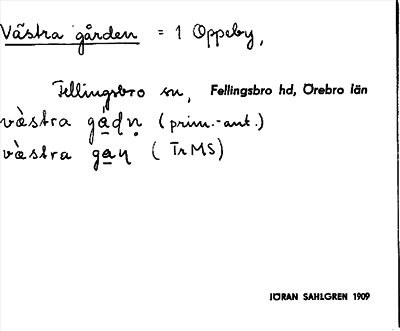 Västra gården = 1 Oppeby,
Fellingsbro sn, Fellingsbro hd, Örebro län
västra gådṇ (prim.-ant.)
västra gaṇ (TrMS)
JÖRAN SAHLGREN 1909